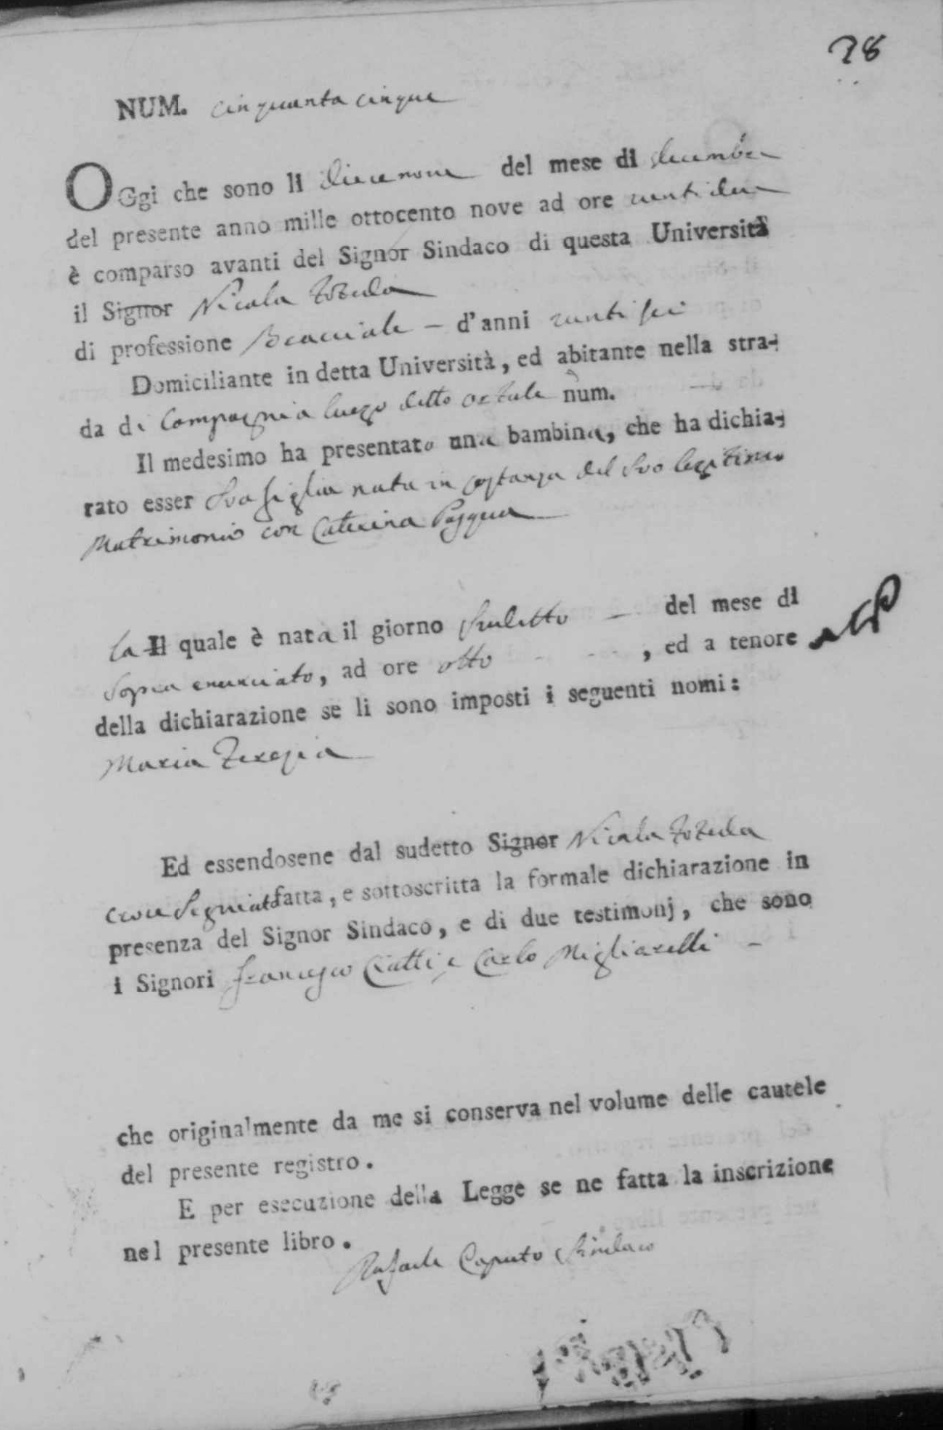 28
NUM. cinquanta cinque
OGgi che sono li diecenove del mese di decembre
del presente anno mille ottocento nove ad ore venti due
è comparso avanti del Signor Sindaco di questa Università
il Signor Nicola
di professione Bracciale – d'anni venti sei
Domiciliante in detta Università, ed abitante nella stra-
da di Compagnia luogo detto ortale num. —
Il medesimo ha presentato una bambina, che ha dichia-
rato esser sua figlia nata in costanza del suo legitimo
Matrimonio con Caterina Pasqua
la Il quale è nata il giorno sudetto — del mese di
sopra enunciato, ad ore otto - - - , ed a tenore
della dichiarazione se li sono imposti i seguenti nomi:
Maria Teresia
Ed essendosene dal sudetto Signor Nicola
croce segniato fatta, e sottoscritta la formale dichiarazione in
presenza del Signor Sindaco, e di due testimonj, che sono
i Signori Francesco Ciatti e Carlo Migliarelli –
che originalmente da me si conserva nel volume delle cautele
del presente registro.
E per esecuzione della Legge se ne fatta la inscrizione
nel presente libro.
Rafaele Caputo Sindaco